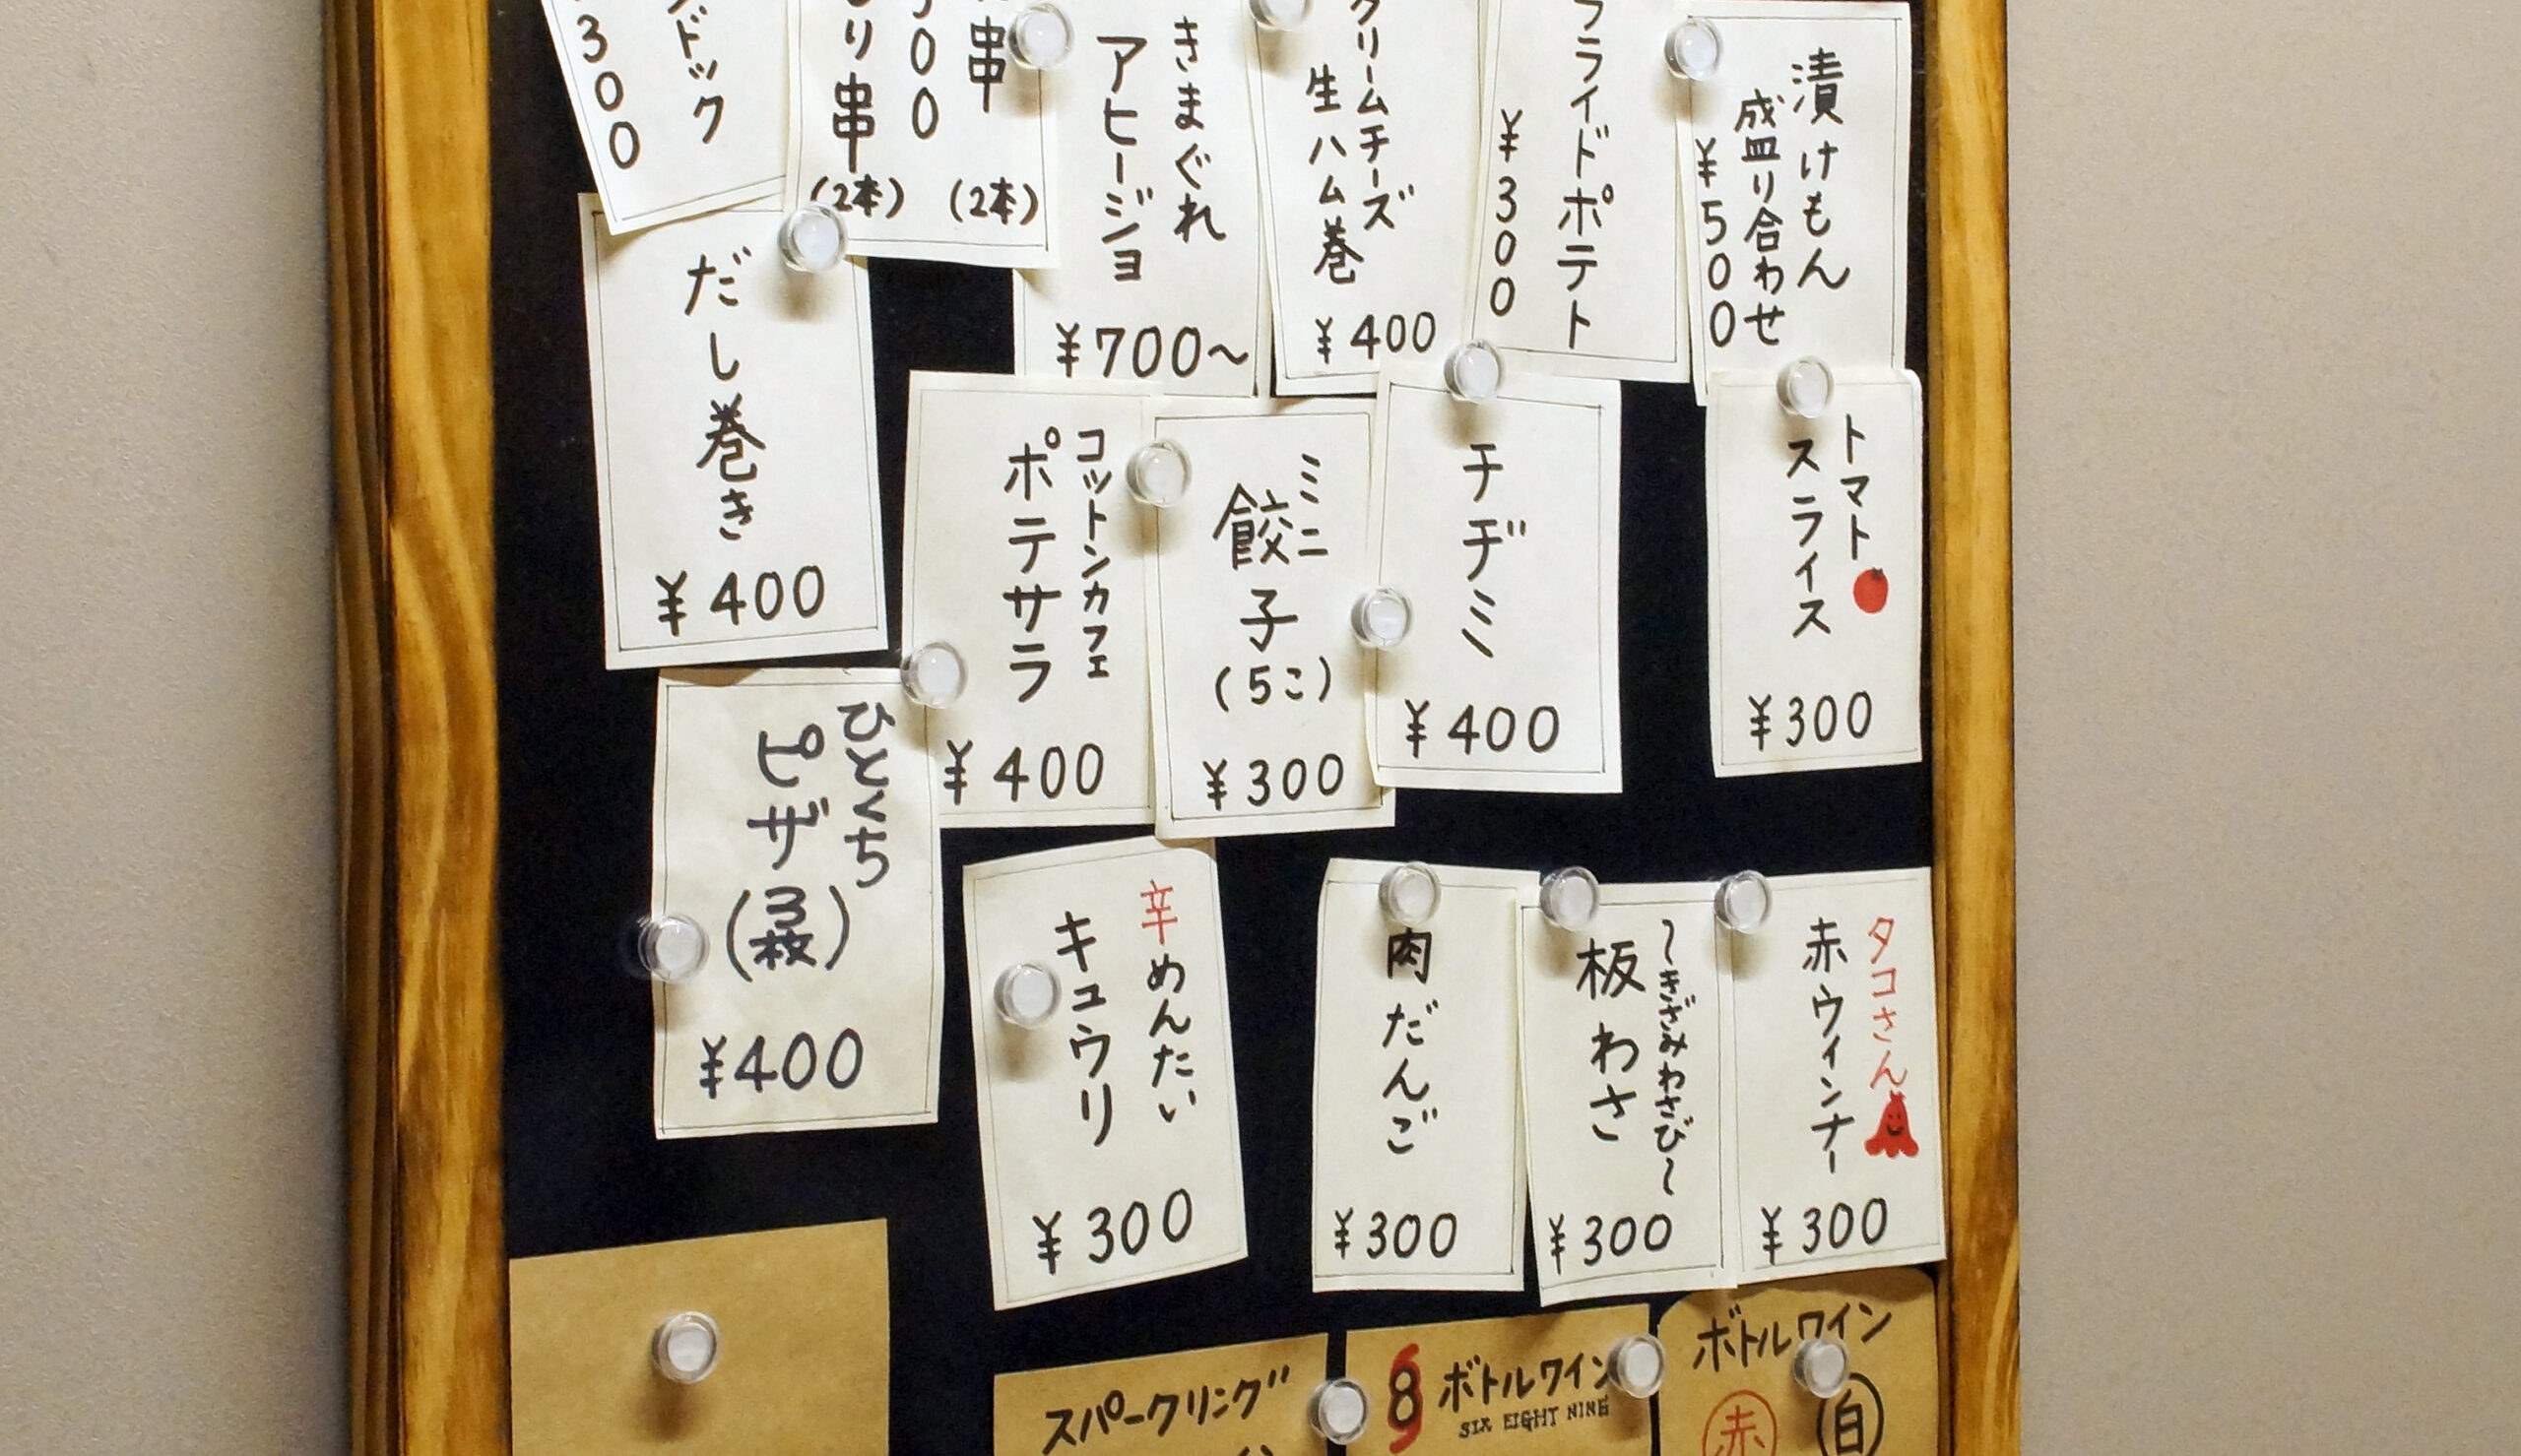 ドック
300
串
(2本)
500
り串
(2本)
きまぐれ
アヒージョ
¥700~
クリームチーズ
生ハム巻
¥400
フライドポテト
¥300
漬けもん
成皿り合わせ
¥500
だし巻き
¥400
コットンカフェ
ポテサラ
¥400
ミニ
餃子
(5こ)
¥300
チヂミ
¥400
トマト
スライス
¥300
ひとくち
ピザ
(3枚)
¥400
辛めんたい
キュウリ
¥300
肉だんご
¥300
板わさ
〜きざみわさび〜
¥300
タコさん
赤ウィンナー
¥300
スパークリング
8 ボトルワイン
SIX EIGHT NINE
ボトルワイン
赤 白